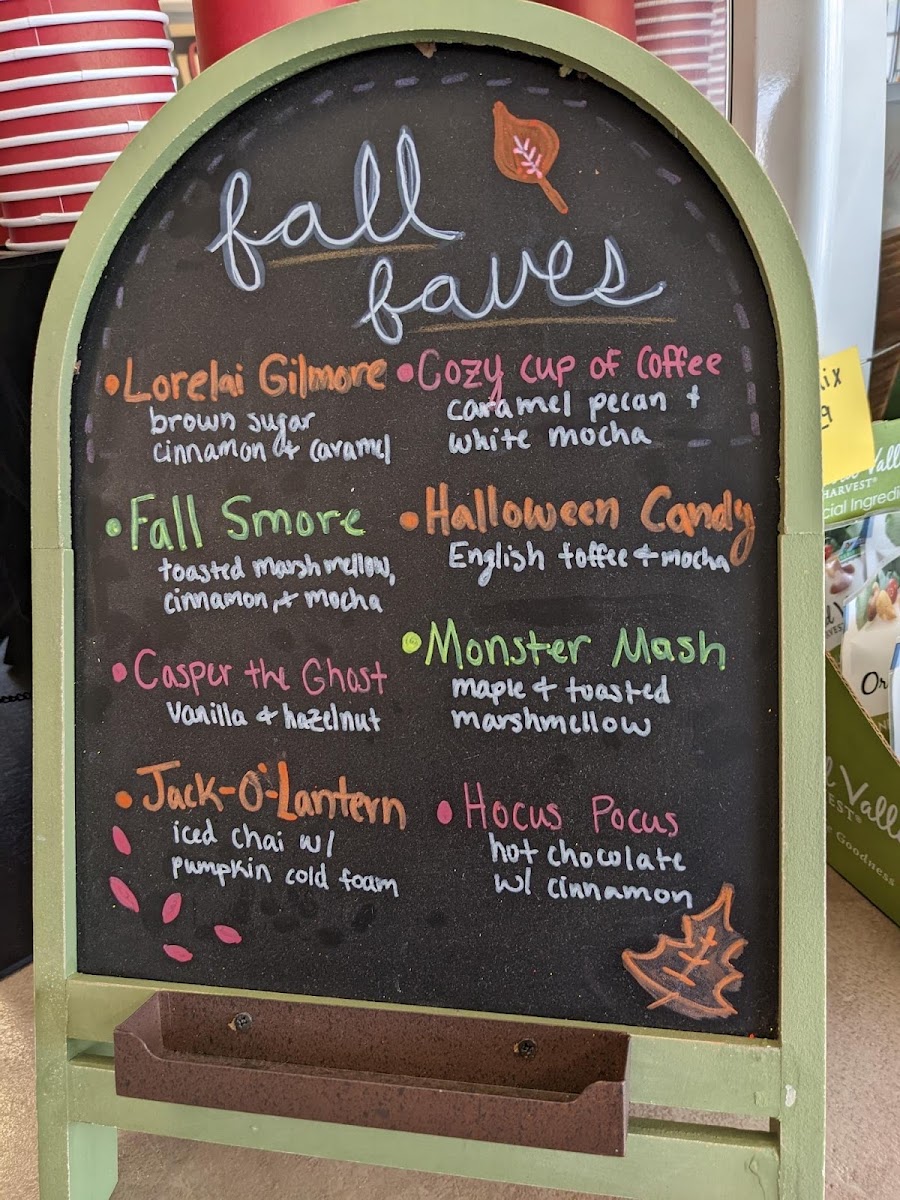 fall
faves
•Lorelai Gilmore
brown sugar
cinnamon & caramel
•Cozy cup of Coffee
caramel pecan +
white mocha
•Fall Smore
toasted marshmellow,
cinnamon, + mocha
•Halloween Candy
English toffee + mocha
•Casper the Ghost
vanilla & hazelnut
•Monster Mash
maple + toasted
marshmellow
•Jack-O'-Lantern
iced chai w/
pumpkin cold foam
•Hocus Pocus
hot chocolate
w/ cinnamon
HARVEST®
Goodness